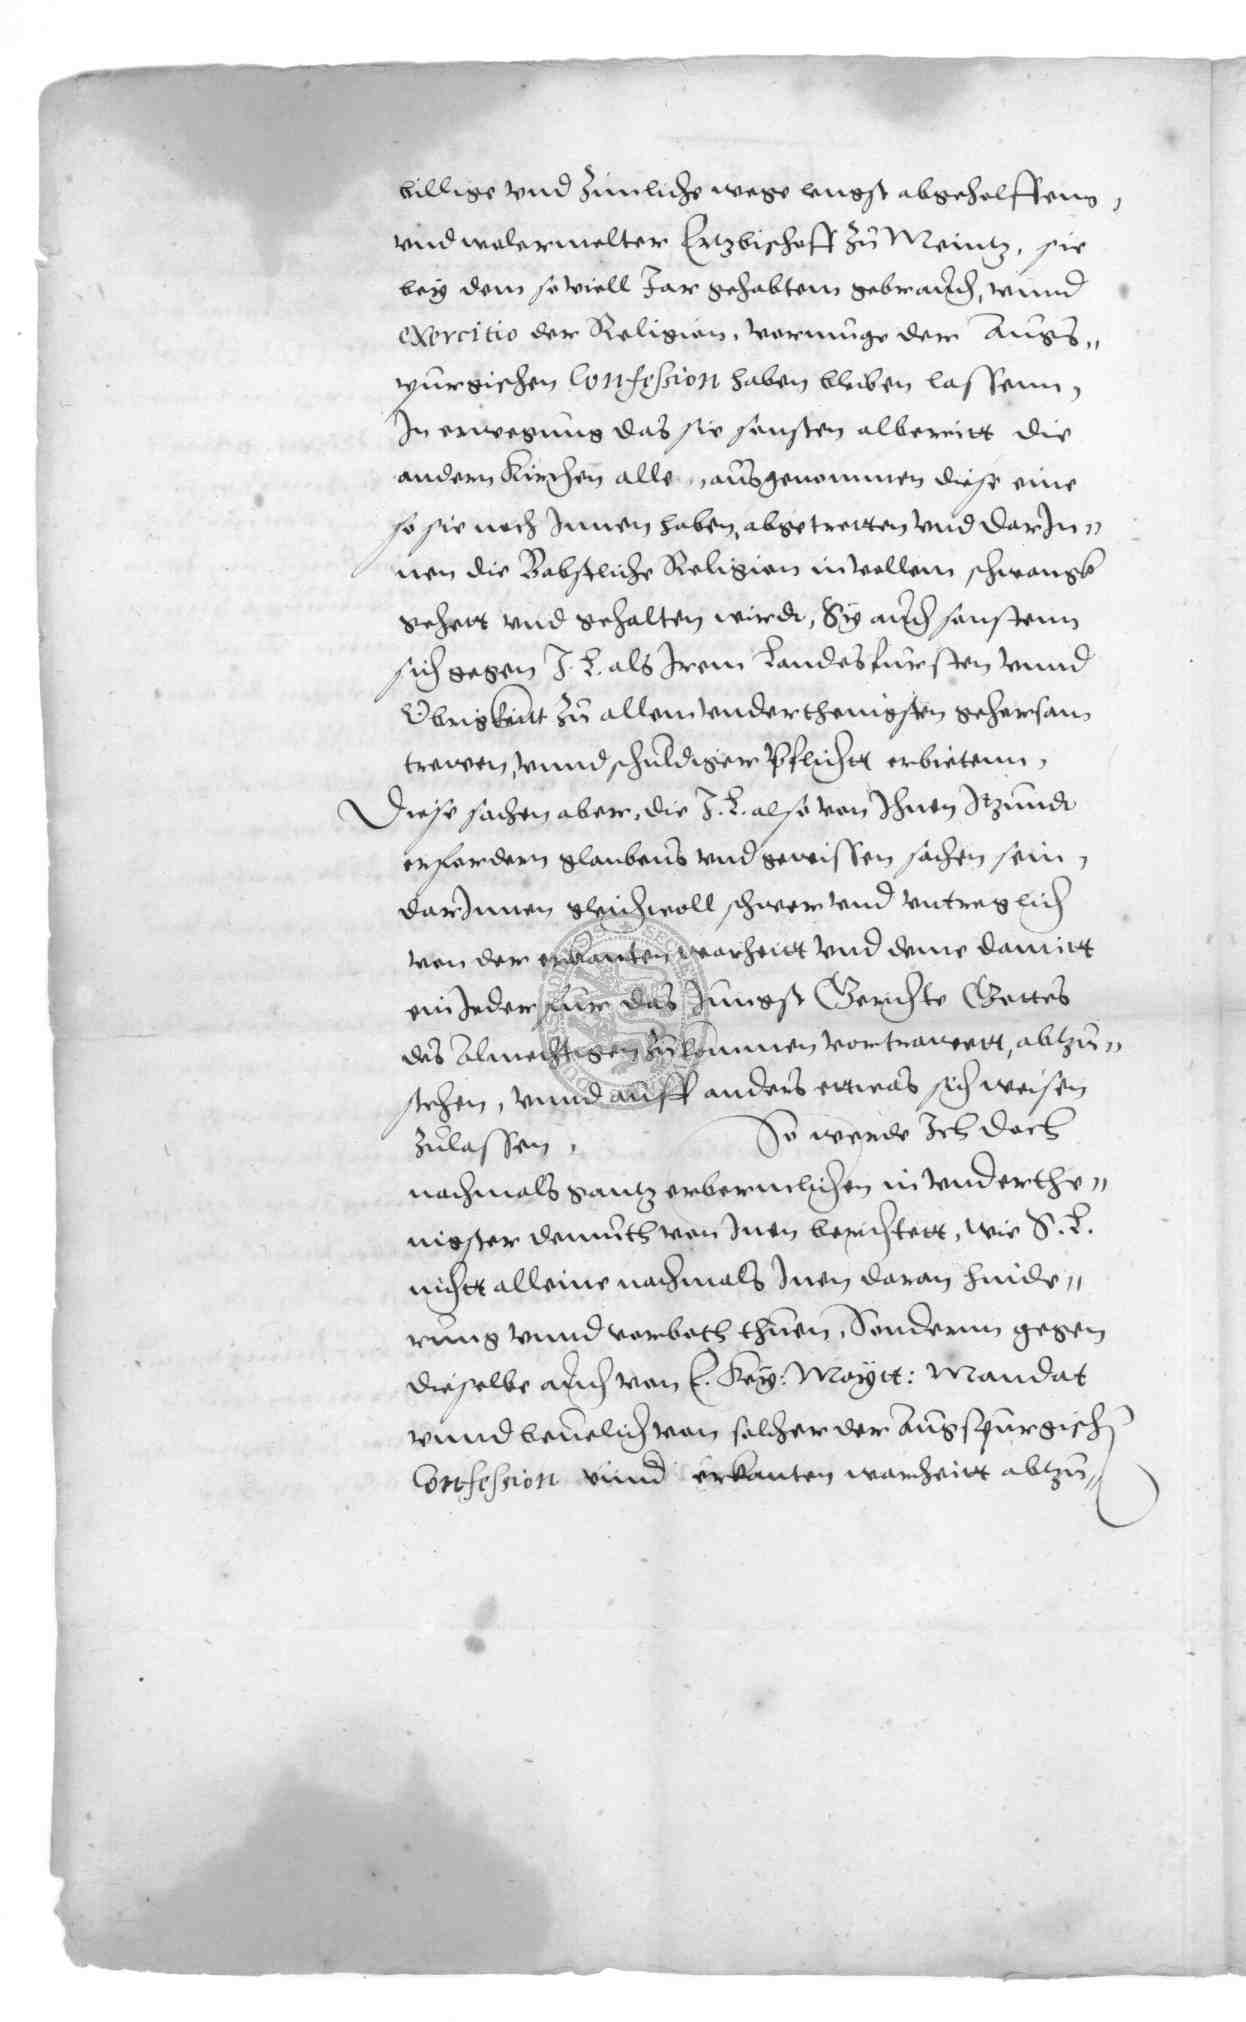 billige vnd Zimliche wege lengst abgeholffenn,
vnd wolermelter Ertzbischoff Zů Meintz, sie
bey dem so viell Jar gehabtem gebrauch, vnnd
exercitio der Religion, vormuge der Augs„
purgischen Confession haben bleiben lassenn,
In erwegung das sie sonsten albereitt die
andern Kirchen alle, ausgenommen diese eine
so sie noch Innen haben, abgetretten vnd dar In„
nen die Babstliche Religion in vollem schwangk
gehett vnd gehalten wirdt, Sy auch sonstenn
sich gegen J. L. als Irem Landesfursten vnnd
Obrigkeitt Zů allem vnderthenigsten gehorsam
trewen, vnnd schuldiger Pflichtt erbietenn,
Diese sachen aber, die J. L. also von Ihnen Itzundt
erfordern glaubens vnd gewissen sachen sein,
dar Innen gleichwoll schwer vnd vntreglich
von der erkanten warheitt vnd deme damitt
ein Ieder fur das Iungst Gerichte Gottes
des Almechtigen Zukommen vortrawett, abtzu„
stehen, vnnd auff anders ettwas sich weisen
Zulassen, So werde Ich doch
nochmals gantz erbermlichen in vnderthe„
nigster demuth von Inen berichtett, wie S. L.
nichtt alleine nachmals Inen daran hinde„
rung vnnd vorboth thuen, Sondernn gegen
dieselbe auch von E. Key: Maytt: Mandat
vnnd beuelich von solcher der Augspurgisch
Confession vnnd erkanten warheitt abtzu„